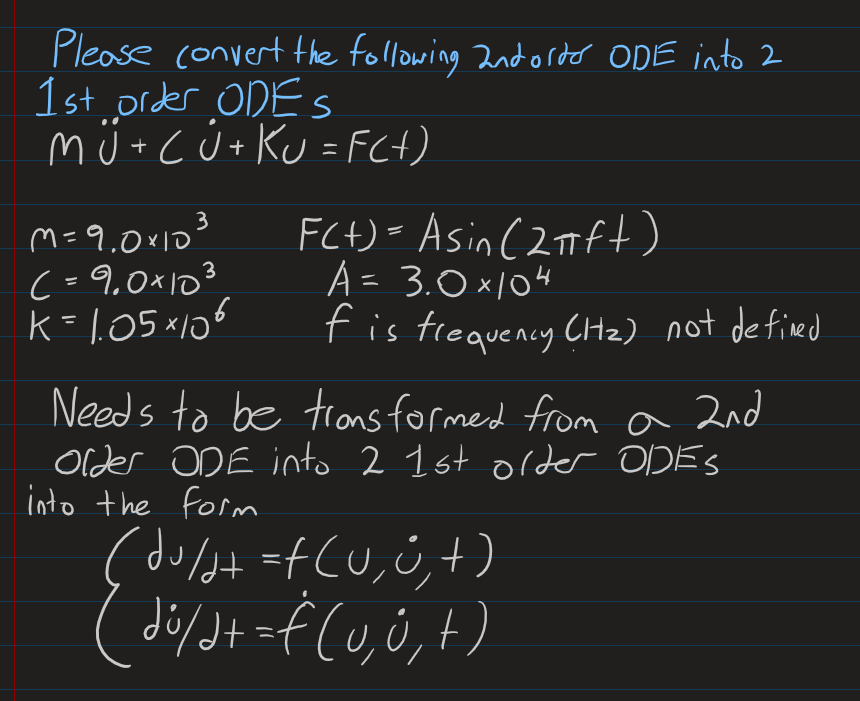 Please convert the following 2nd order ODE into 2
1st order ODEs
mü + C u̇ + Ku = F(t)
m = 9.0×10³ F(t) = A sin(2πft)
C = 9.0×10³ A = 3.0×10⁴
K = 1.05×10⁶ f is frequency (Hz) not defined
Needs to be transformed from a 2nd
order ODE into 2 1st order ODEs
into the form
du/dt = f(u, u̇, t)
du̇/dt = ḟ(u, u̇, t)